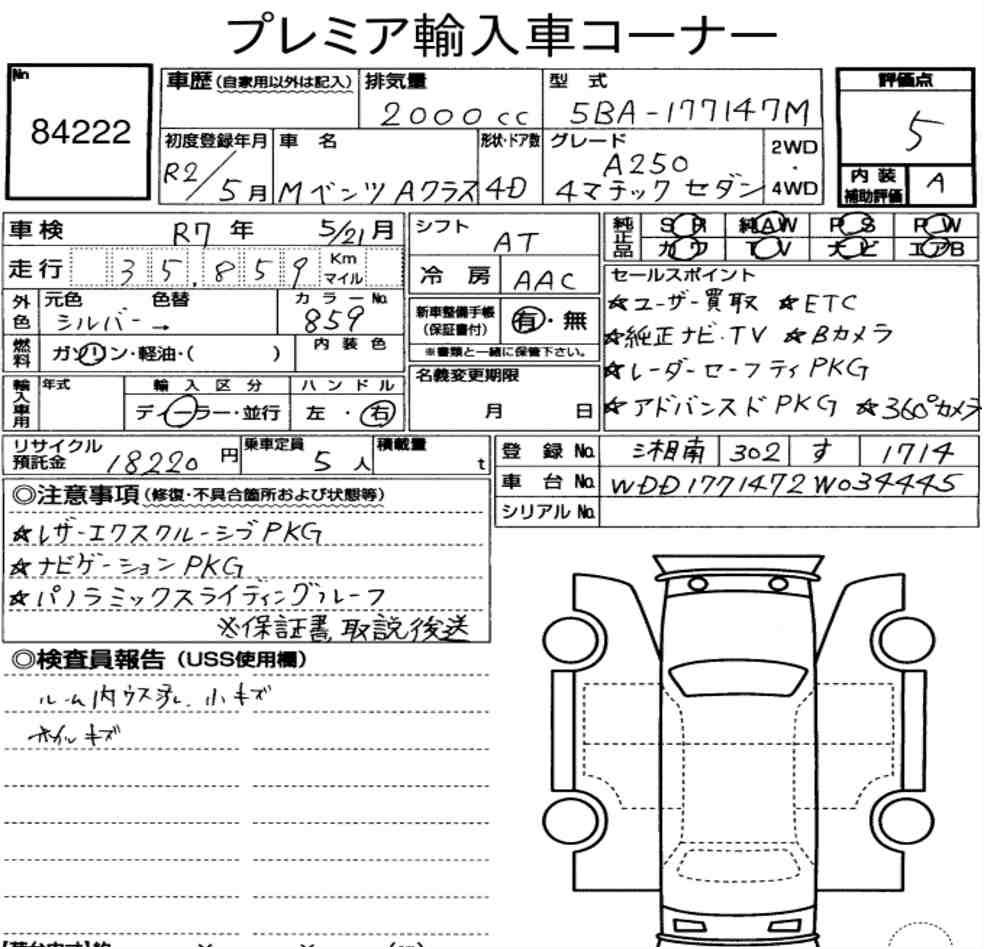 プレミア輸入車コーナー
No
84222
車歴 (自家用以外は記入) 排気量 型 式 評価点
2000cc 5BA-177147M 5
初度登録年月 車 名 形状・ドア数 グレード
R2/5月 Mベンツ Aクラス 4D A250 4マチック セダン 2WD・4WD
内装補助評価 A
車検 R7 年 5/21月
走行 35,859 Km マイル
外色 元色 色替 カラーNo.
シルバー→ 859
燃料 ガソリン・軽油・( ) 内装色
輸入車用 年式 輸入区分 ハンドル
ディーラー・並行 左・右
シフト AT
冷房 AAC
新車整備手帳(保証書付) 有・無
※書類と一緒に保管下さい。
名義変更期限
月 日
純正品 SR 純AW PS PW
カワ TV ナビ エアB
セールスポイント
☆ユーザー買取 ☆ETC
☆純正ナビ・TV ☆Bカメラ
☆レーダーセーフティPKG
☆アドバンスドPKG ☆360°カメラ
リサイクル預託金 18220 円 乗車定員 5人 積載量 t
登録No. 湘南 302 す 1714
車台No. WDD1771472W034445
シリアルNo.
◎注意事項 (修復・不具合箇所および状態等)
☆レザーエクスクルーシブPKG
☆ナビゲーションPKG
☆パノラミックスライディングルーフ
※保証書、取説後送
◎検査員報告 (USS使用欄)
ルーム内ウス汚れ、小キズ
ホイルキズ